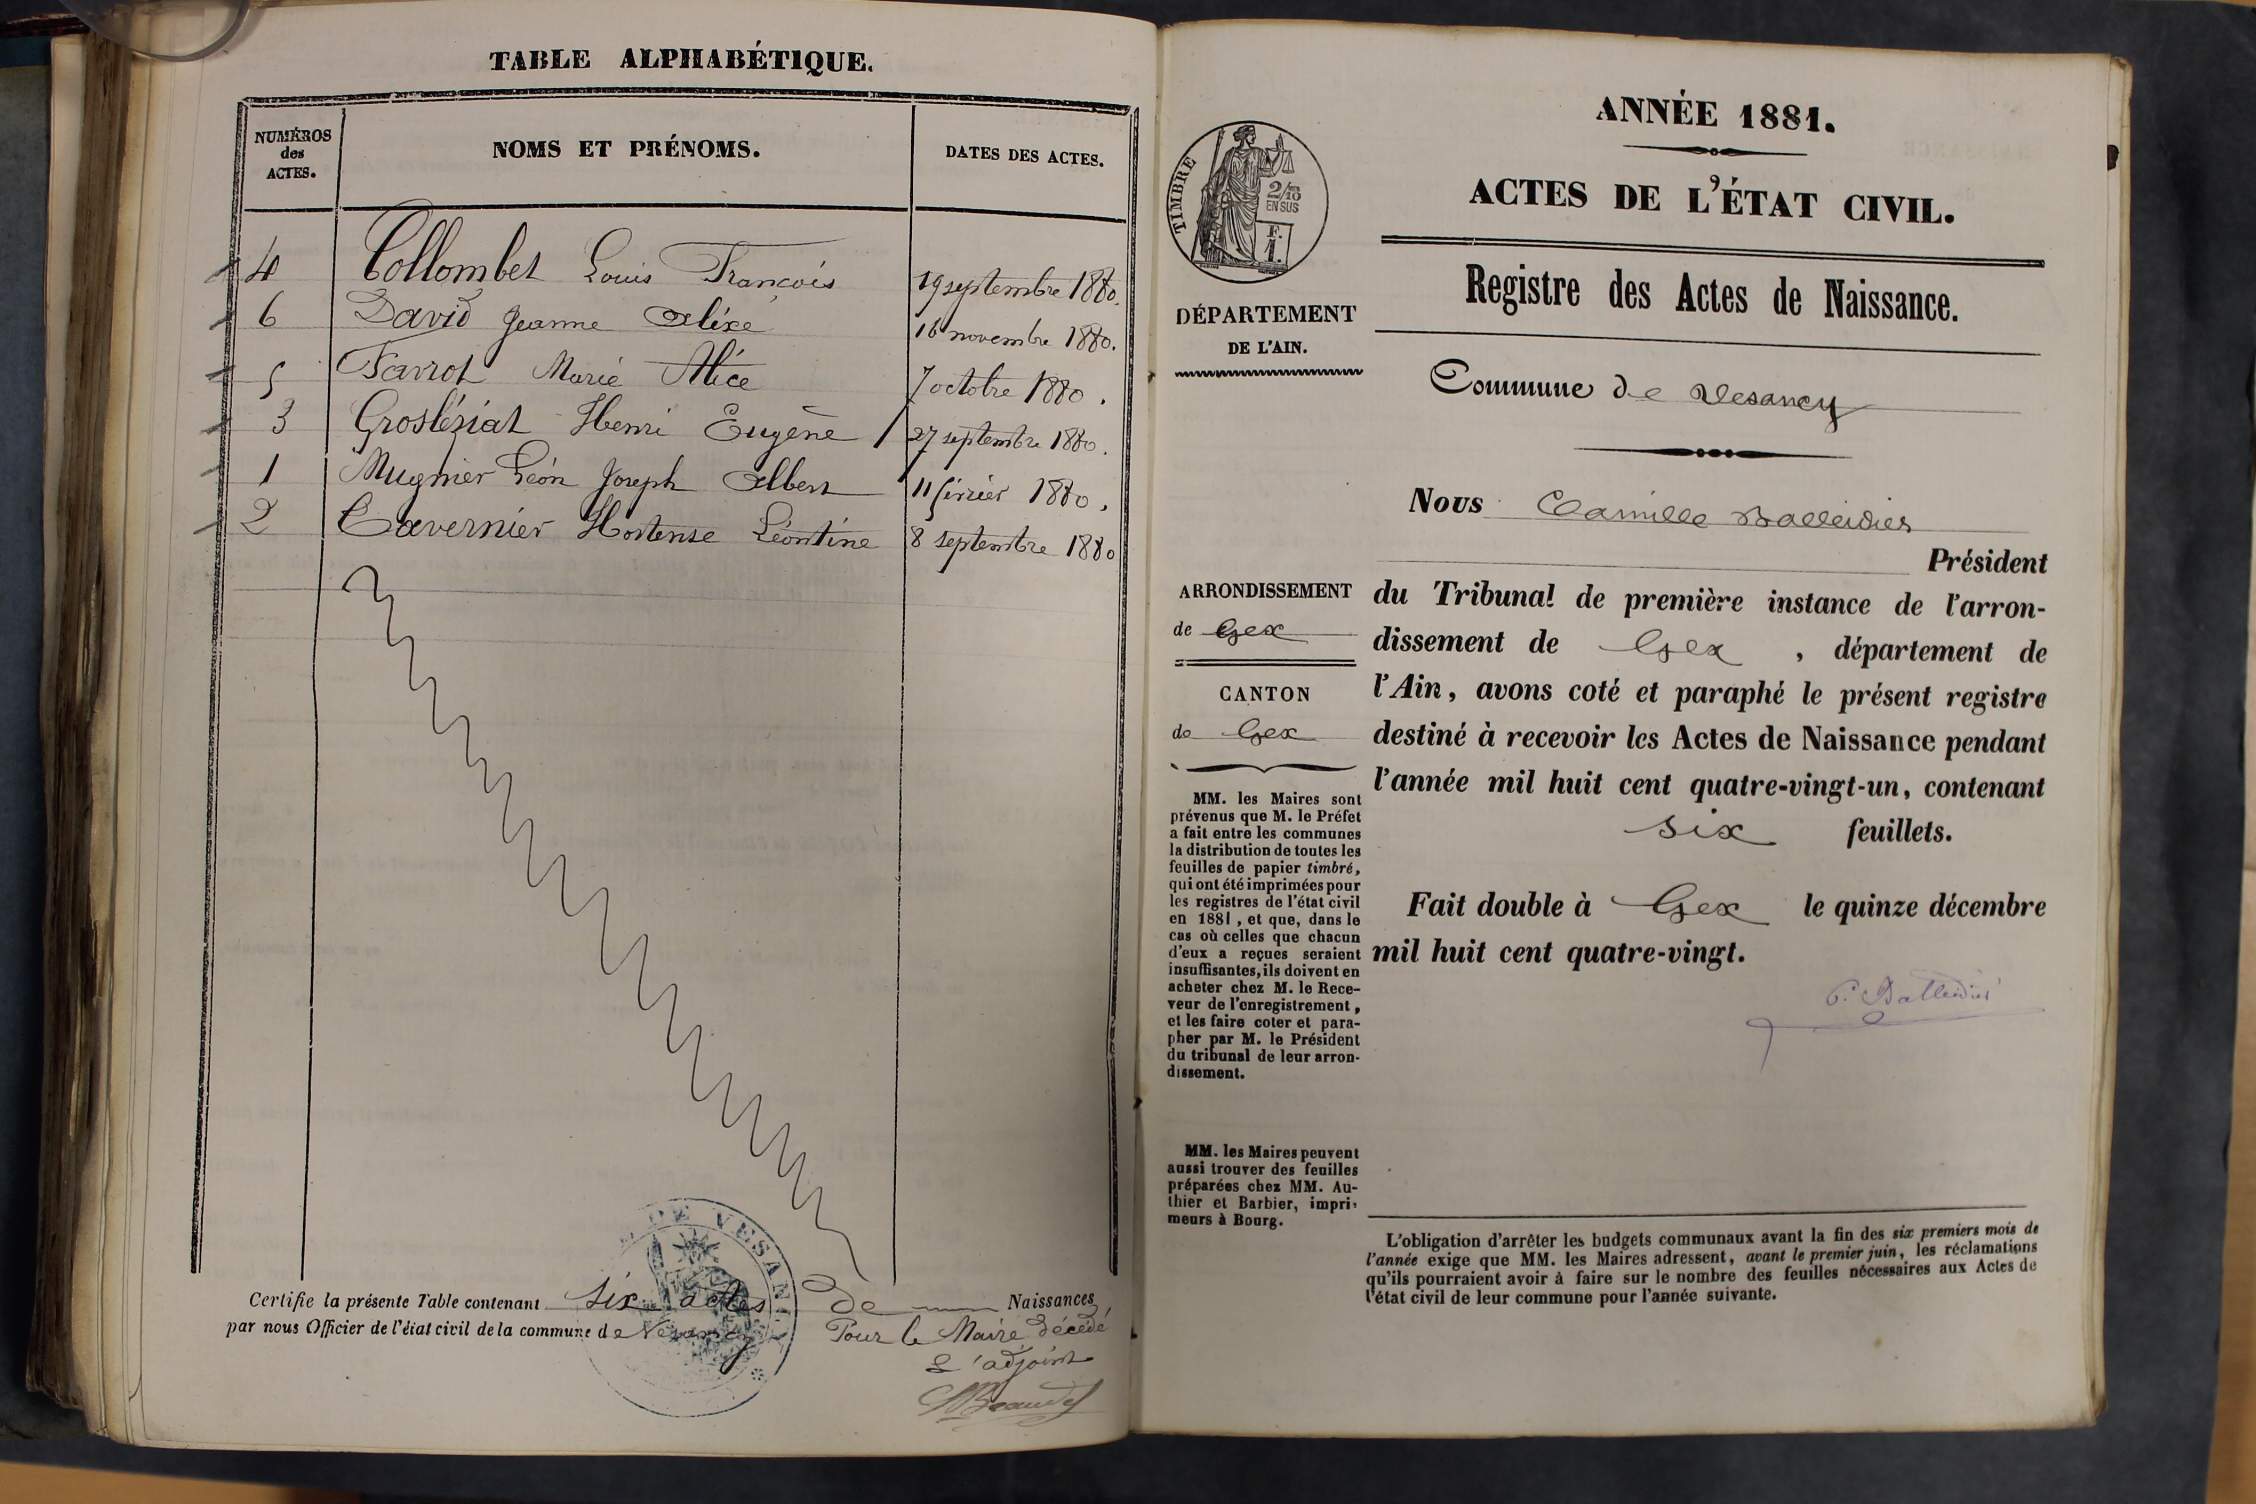 TABLE ALPHABÉTIQUE.
NUMÉROS
des
ACTES.
NOMS ET PRÉNOMS.
DATES DES ACTES.
4 Collombet Louis François 19 septembre 1880.
6 David Jeanne Alixe 16 novembre 1880.
5 Favrot Marie Alice 7 octobre 1880.
3 Grosléziat Henri Eugène 27 septembre 1880.
1 Mugnier Léon Joseph Albert 11 février 1880.
2 Tavernier Hortense Léontine 8 septembre 1880
DE VESANCY
Certifie la présente Table contenant six actes de Naissances
par nous Officier de l'état civil de la commune de Vesancy Pour le Maire décédé
L'adjoint
ANNÉE 1881.
ACTES DE L'ÉTAT CIVIL.
Registre des Actes de Naissance.
TIMBRE
2/10
EN SUS
F.
1.
DÉPARTEMENT
DE L'AIN.
ARRONDISSEMENT
de Gex
CANTON
de Gex
MM. les Maires sont
prévenus que M. le Préfet
a fait entre les communes
la distribution de toutes les
feuilles de papier timbré,
qui ont été imprimées pour
les registres de l'état civil
en 1881, et que, dans le
cas où celles que chacun
d'eux a reçues seraient
insuffisantes, ils doivent en
acheter chez M. le Rece-
veur de l'enregistrement,
et les faire coter et para-
pher par M. le Président
du tribunal de leur arron-
dissement.
MM. les Maires peuvent
aussi trouver des feuilles
préparées chez MM. Au-
thier et Barbier, impri-
meurs à Bourg.
Commune de Vesancy
Nous Camille Balleidier
Président
du Tribunal de première instance de l'arron-
dissement de Gex, département de
l'Ain, avons coté et paraphé le présent registre
destiné à recevoir les Actes de Naissance pendant
l'année mil huit cent quatre-vingt-un, contenant
six feuillets.
Fait double à Gex le quinze décembre
mil huit cent quatre-vingt.
C. Balleidier
L'obligation d'arrêter les budgets communaux avant la fin des six premiers mois de
l'année exige que MM. les Maires adressent, avant le premier juin, les réclamations
qu'ils pourraient avoir à faire sur le nombre des feuilles nécessaires aux Actes de
l'état civil de leur commune pour l'année suivante.